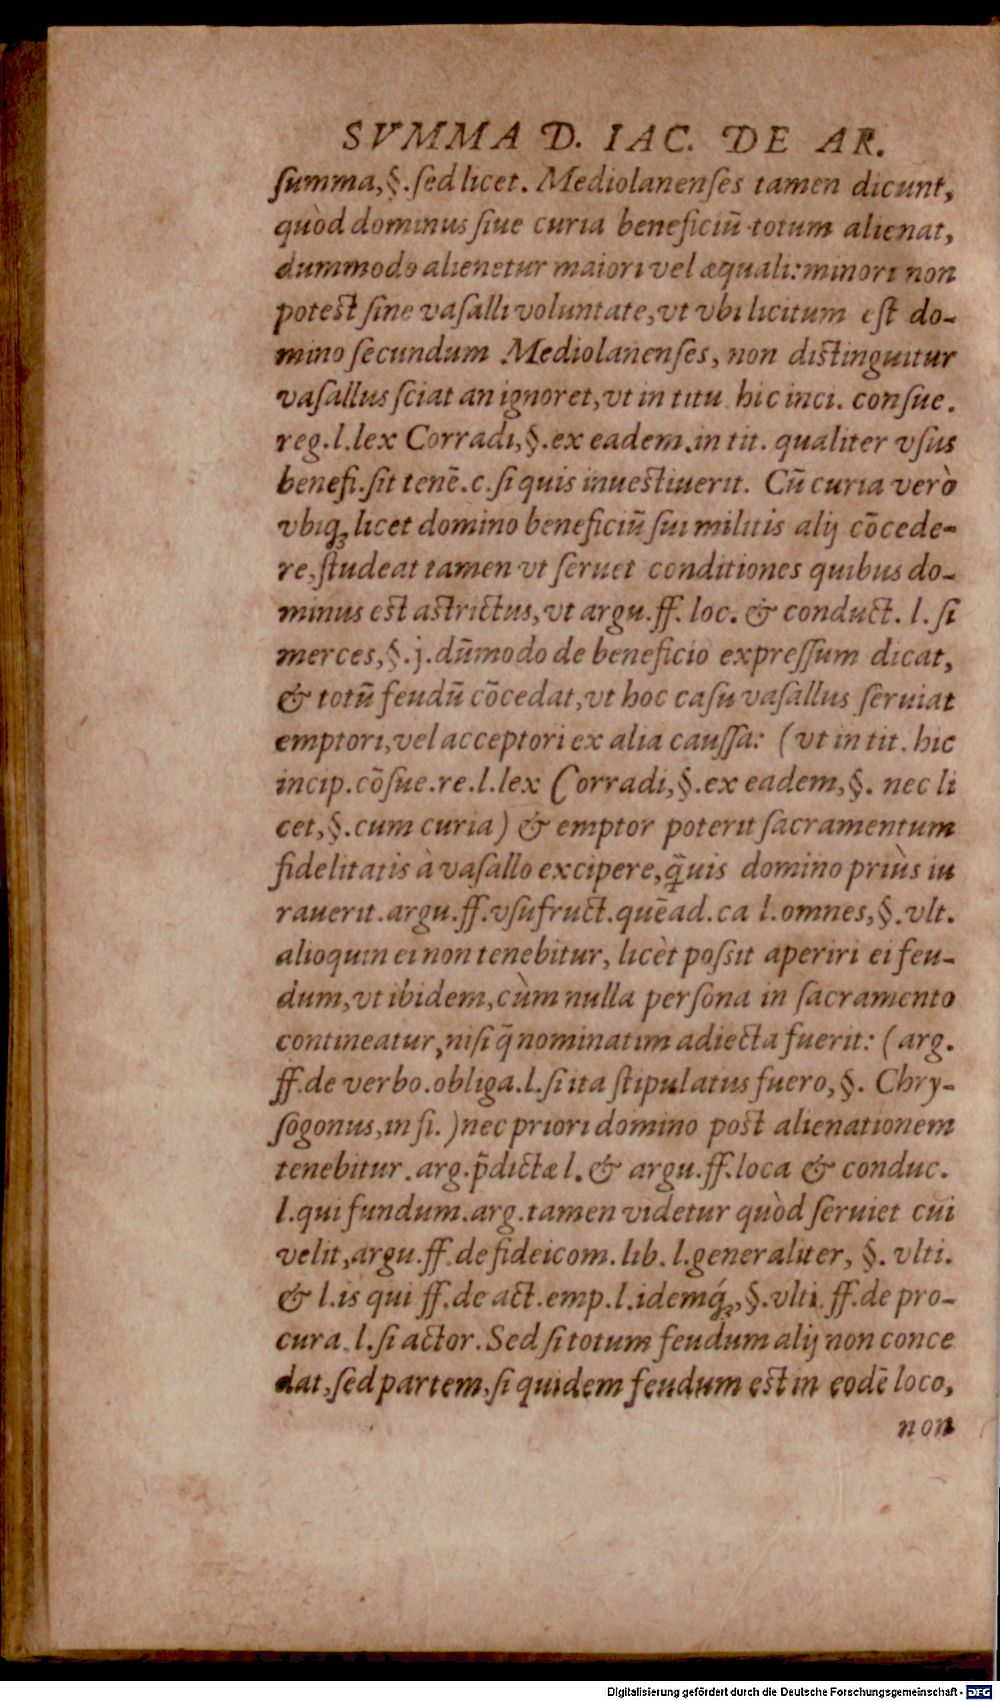 SVMMA D. IAC. DE AR.
ſumma,§.ſed licet. Mediolanenſes tamen dicunt,
quòd dominus ſiue curia beneficiū totum alienat,
dummodo alienetur maiori vel æquali: minori non
poteſt ſine vaſalli voluntate, vt vbi licitum eſt do-
mino ſecundum Mediolanenſes, non diſtinguitur
vaſallus ſciat an ignoret, vt in titu hic inci. conſue.
reg.l.lex Corradi,§.ex eadem.in tit. qualiter vſus
benefi.ſit tenē.c.ſi quis inueſtiuerit. Cū curia verò
vbiqꝫ licet domino beneficiū ſui militis alij cōcede-
re, ſtudeat tamen vt ſeruet conditiones quibus do-
minus eſt aſtrictus, vt argu.ff. loc. & conduct. l. ſi
merces,§.j.dūmodo de beneficio expreſſum dicat,
& totū feudū cōcedat, vt hoc caſu vaſallus ſeruiat
emptori, vel acceptori ex alia cauſſa: (vt in tit. hic
incip.cōſue.re.l.lex Corradi,§.ex eadem,§. nec li
cet,§.cum curia) & emptor poterit ſacramentum
fidelitatis à vaſallo excipere, q̃uis domino priùs iu
rauerit.argu.ff.vſufruct.quēad.ca l.omnes,§.vlt.
alioquin ei non tenebitur, licèt poſsit aperiri ei feu-
dum, vt ibidem, cùm nulla perſona in ſacramento
contineatur, niſi q̃ nominatim adiecta fuerit: (arg.
ff.de verbo.obliga.l.ſi ita ſtipulatus fuero,§. Chry-
ſogonus, in fi.) nec priori domino poſt alienationem
tenebitur. arg.p̃dictæ l. & argu.ff.loca & conduc.
l.qui fundum.arg.tamen videtur quòd ſeruiet cui
velit, argu.ff.de fideicom.lib.l.generaliter, §. vlti.
& l.is qui ff.de act.emp.l.idemq́ꝫ,§.vlti ff.de pro-
cura.l.ſi actor. Sed ſi totum feudum alij non conce
dat, ſed partem, ſi quidem feudum eſt in eodē loco,
non
Digitalisierung gefördert durch die Deutsche Forschungsgemeinschaft - DFG